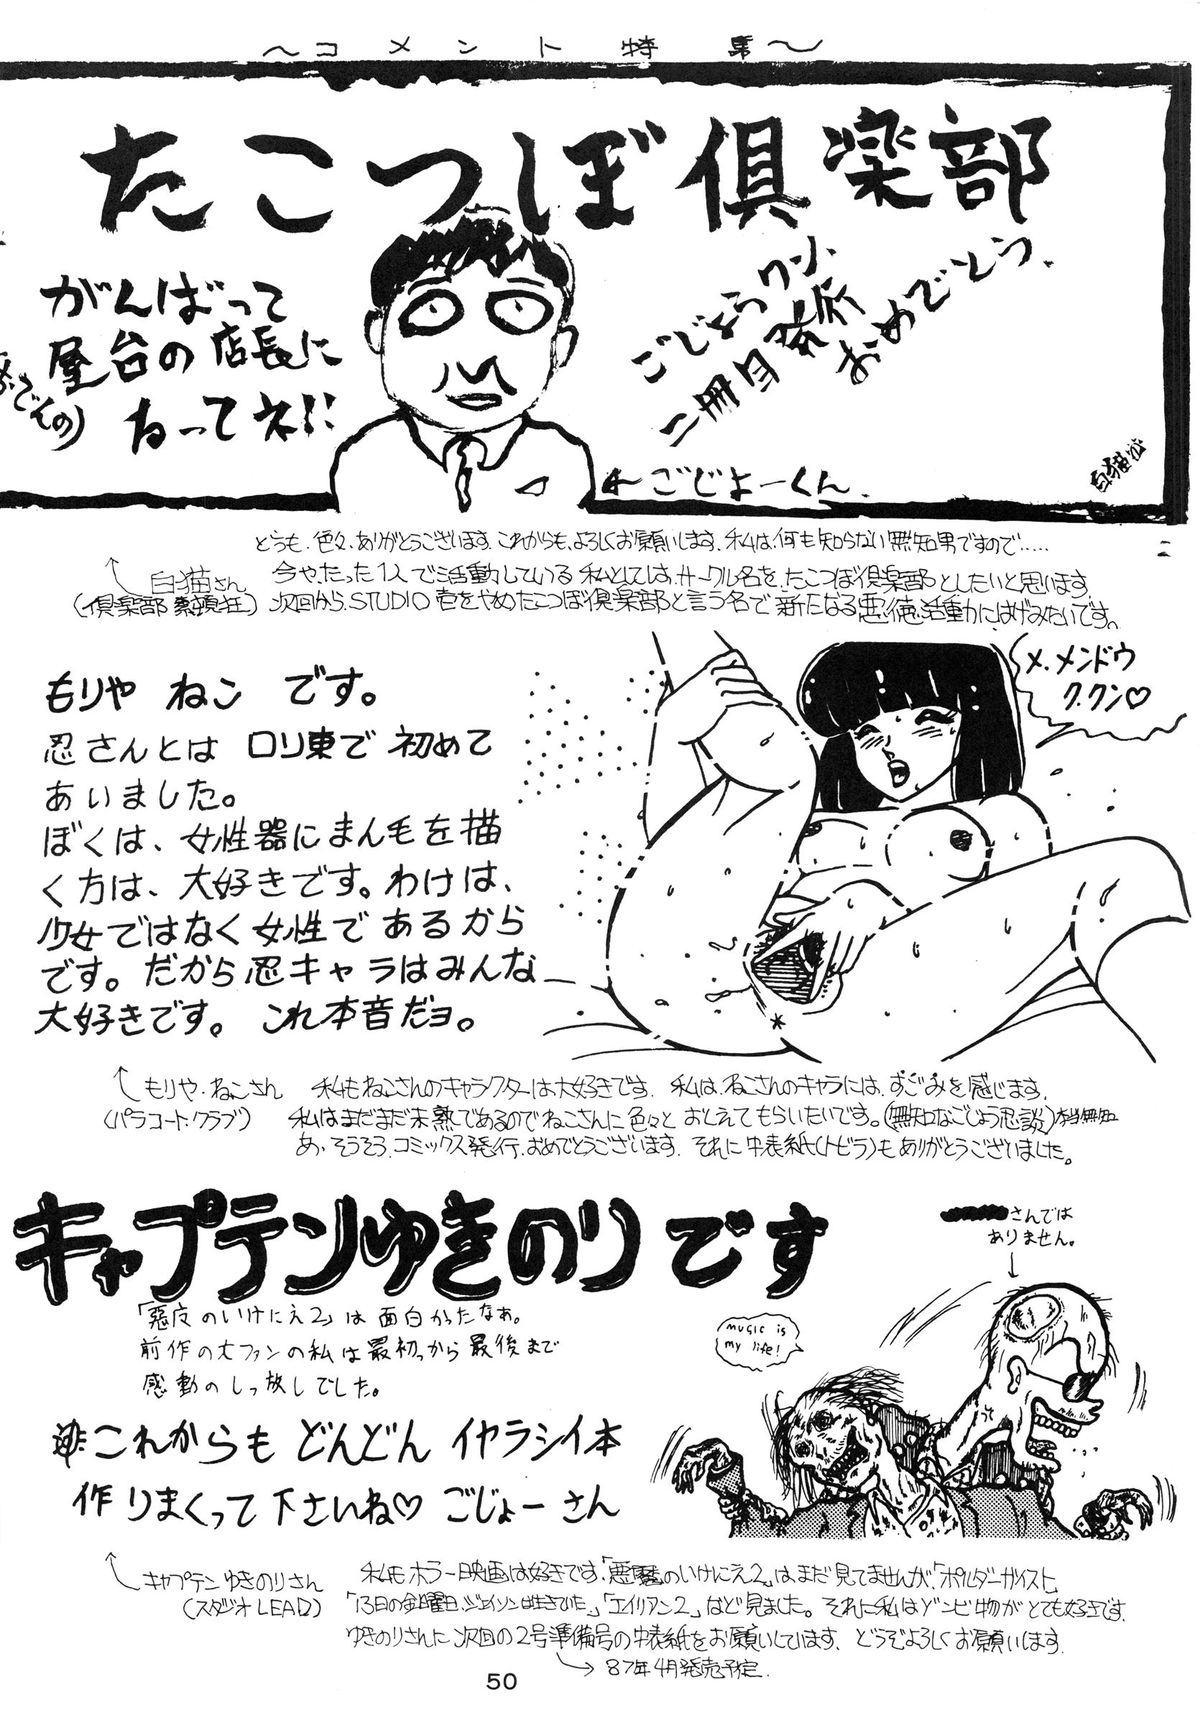 ～コメント特集～
たこつぼ倶楽部
がんばって
屋台の店長に
なってネ!!
(おでんの)
ごじょうクン、
二冊目発行
おめでとう、
←ごじょーくん、
どうも、色々、ありがとうございます。これからも、よろしくお願いします。私は、何も知らない無知男ですので……
↑白猫さん
今や、たった1人で活動している私としては、サークル名を、たこつぼ倶楽部としたいと思います。
次回から、STUDIO壱をやめたこつぼ倶楽部と言う名で新たなる悪徳活動にはげみたいです。
もりや ねこ です。
忍さんとは ロリ東で 初めて
あいました。
ぼくは、女性器にまん毛を描
く方は、大好きです。わけは、
少女ではなく女性であるから
です。だから忍キャラはみんな
大好きです。これ本音だヨ。
メ、メンドウ
ク、クン♡
↑もりや・ねこさん
(パラコート・クラブ)
私もねこさんのキャラクターは大好きです。私は、ねこさんのキャラには、すごみを感じます。
私はまだまだ未熟であるのでねこさんに色々とおしえてもらいたいです。(無知なごじょう忍談)
あ、そうそう、コミックス発行、おめでとうございます。それに中表紙(トビラ)もありがとうございました。
キャプテンゆきのりです
さんでは
ありません。
「悪魔のいけにえ2」は面白かったなぁ。
前作の大ファンの私は最初っから最後まで
感動のしっ放しでした。
music is
my life!
これからも どんどん イヤラシイ本
作りまくって下さいね♡ ごじょーさん
↑キャプテンゆきのりさん
(スタジオLEAD)
私もホラー映画は好きです。「悪魔のいけにえ2」はまだ見てませんが、「ポルターガイスト」、
「13日の金曜日、ジェイソンは生きていた」、「エイリアン2」など見ました。それに私はゾンビ物がとても好きです。
ゆきのりさんに次回の2号準備号の中表紙をお願いしています、どうぞよろしくお願いします。
→87年4月発売予定
50